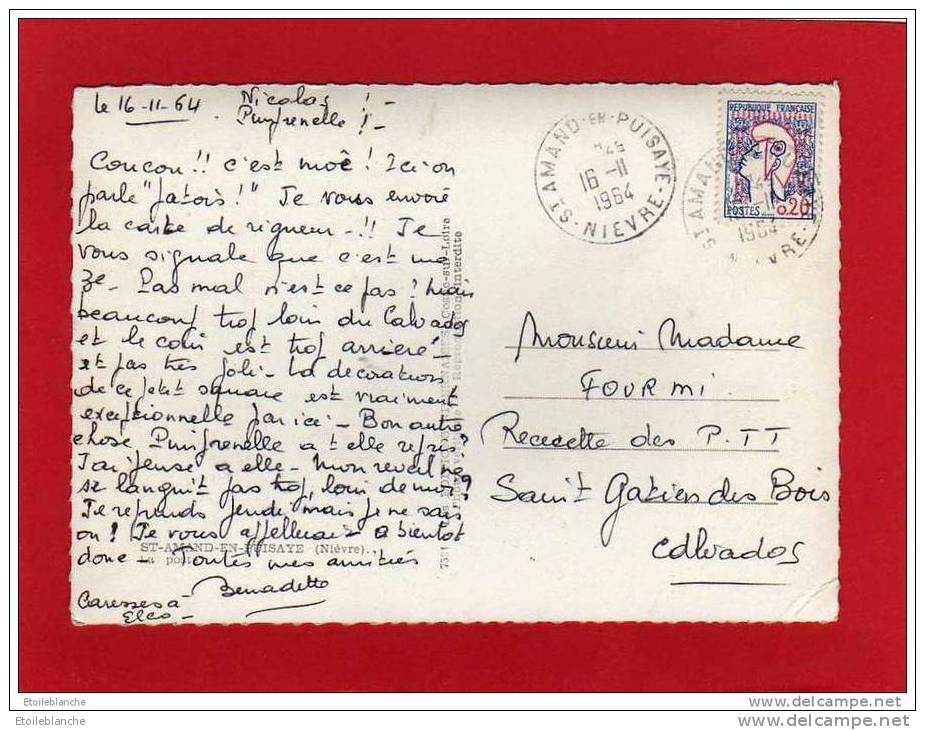 le 16-11-64
Nicolas !-
Pimprenelle !-
Coucou !! c'est moê ! Ici on
parle "patois !" Je vous envoie
la carte de rigueur -!! Je
vous signale que c'est ma
2e - Pas mal n'est ce pas ? Mais
beaucoup trop loin du Calvados
et le coin est trop arriéré -
et pas très joli - La décoration
de ce petit square est vraiment
exceptionnelle par ici - Bon autre
chose Pimprenelle a t elle repris ?
J'ai pensé a elle - Mon reval ne
se languit pas trop, loin de moi ?
Je reprends jeudi, mais je ne sais
où ! Je vous appellerais a bientôt
donc - Toutes mes amitiés
Bernadette
Caresses à
Elco -
ST-AMAND-EN-PUISAYE (Nièvre).
La post
Cosne-sur-Loire
Reproduction interdite
ST-AMAND-EN-PUISAYE
16-11
1964
NIEVRE
REPUBLIQUE FRANÇAISE
POSTES 0,20
ST AMAND
1964
NIEVRE
Monsieur Madame
FOURMI
Recette des P.TT
Saint Gatien des Bois
Calvados
Etoileblanche
Etoileblanche
www.delcampe.net